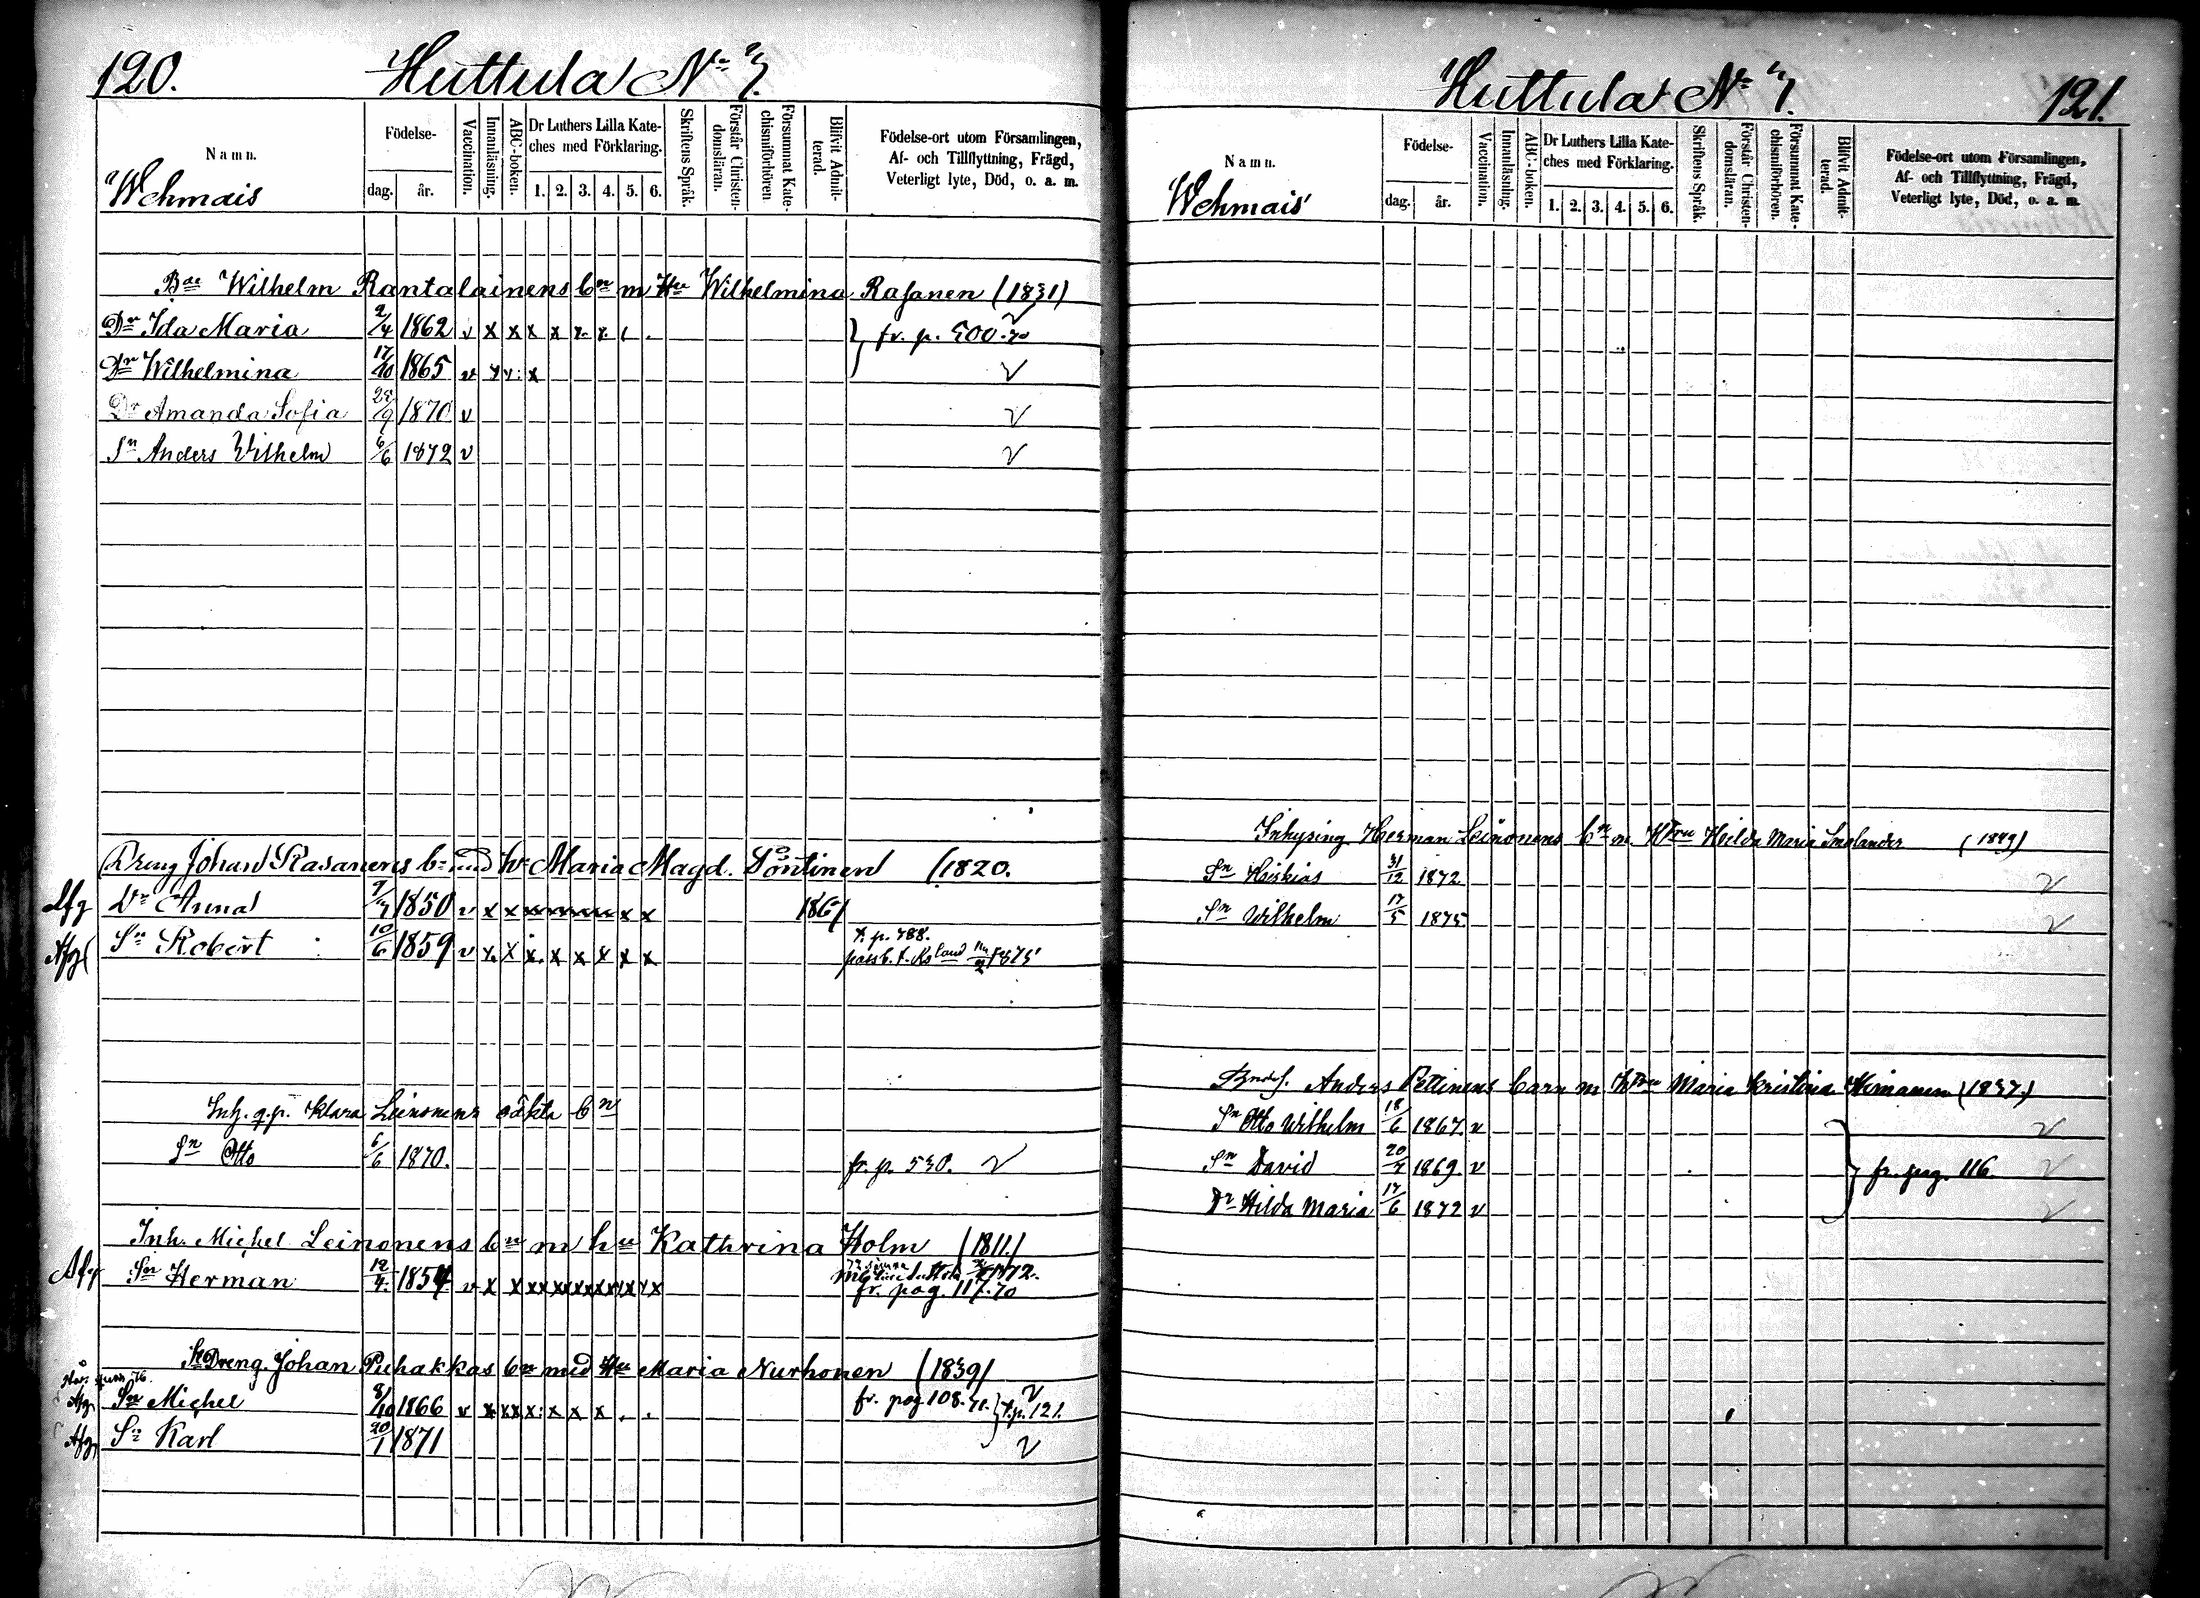 120. Huttula No 7.
Namn.
Födelse-
dag. år.
Vaccination.
Innanläsning.
ABC-boken.
Dr Luthers Lilla Kateches med Förklaring.
1. 2. 3. 4. 5. 6.
Skriftens Språk.
Förstår Christendomsläran.
Försummat Katechismiförhören
Blifvit Admitterad.
Födelse-ort utom Församlingen,
Af- och Tillflyttning, Frägd,
Veterligt lyte, Död, o. a. m.
Wehmais
Bde Wilhelm Rantalainens bn m Hu Wilhelmina Rasanen (1831)
Dr Ida Maria 2/4 1862 v x x x x x. x. fr. p. 500. 70 v
Dr Wilhelmina 17/10 1865 v x x x v
Dr Amanda Sofia 1870 v v
Sn Anders Wilhelm 6/6 1872 v v
Dreng Johan Rasanens bn med h. Maria Magd. Pöntinen (1820.
Afg Dr Anna 1850 v x x x x 1867
t. p. 788.
Afg Sn Robert 10/6 1859 v x. x x. x x x x x passb. t. 1875
Inh. q.p. Klara Leinonens oäkta bn
Sn Otto 6/6 1870. fr. p. 530. v
Inh. Michel Leinonens bn m hu Kathrina Holm (1811.)
Afg Sn Herman 12/4. 1854 v x x x x x x x x 1872.
fr. pag. 117. 70
Dreng. Johan Puhakkas bn med Hu Maria Nurhonen (1839)
Afg Sn Michel 8/10 1866 v x x x x: x x x . . fr. pag 108. 71. t.p. 121. v
Afg Sn Karl 20/1 1871 v
Huttula No 7. 121.
Namn.
Födelse-
dag. år.
Vaccination.
Innanläsning.
ABC-boken.
Dr Luthers Lilla Kateches med Förklaring.
1. 2. 3. 4. 5. 6.
Skriftens Språk.
Förstår Christendomsläran.
Försummat Katechismiförhören.
Blifvit Admitterad.
Födelse-ort utom Församlingen,
Af- och Tillflyttning, Frägd,
Veterligt lyte, Död, o. a. m.
Wehmais
Inhysing Herman Leinonens bn m. Hfru Hilda Maria Smolander (1849)
Sn Hiskias 31/12 1872 v
Sn Wilhelm 17/5 1875. v
Anders Pettinens barn m. hfru Maria Kristina Hirnanen (1837.)
Sn Otto Wilhelm 18/6 1867. v v
Sn David 20/7 1869. v fr. pag. 116. v
Dr Hilda Maria 17/6 1872 v v